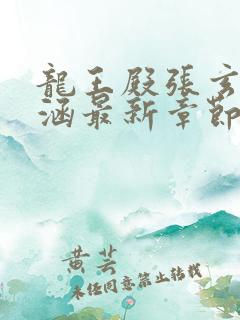 龍王殿張玄
涵最新章節
黄芸
未任同意禁止转载